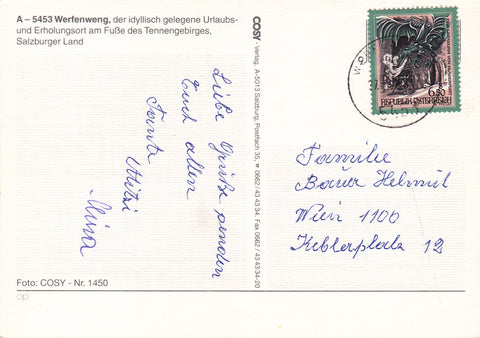 A – 5453 Werfenweng, der idyllisch gelegene Urlaubs-
und Erholungsort am Fuße des Tennengebirges,
Salzburger Land
Liebe Grüße senden
Euch allen
Tante Mitzi
Mina
Foto: COSY - Nr. 1450
COSY - Verlag, A-5013 Salzburg, Postfach 35, 0662/43 43 34, Fax 0662/43 43 34-20
REPUBLIK ÖSTERREICH
Familie
Bauer Helmut
Wien 1100
Keplerplatz 12